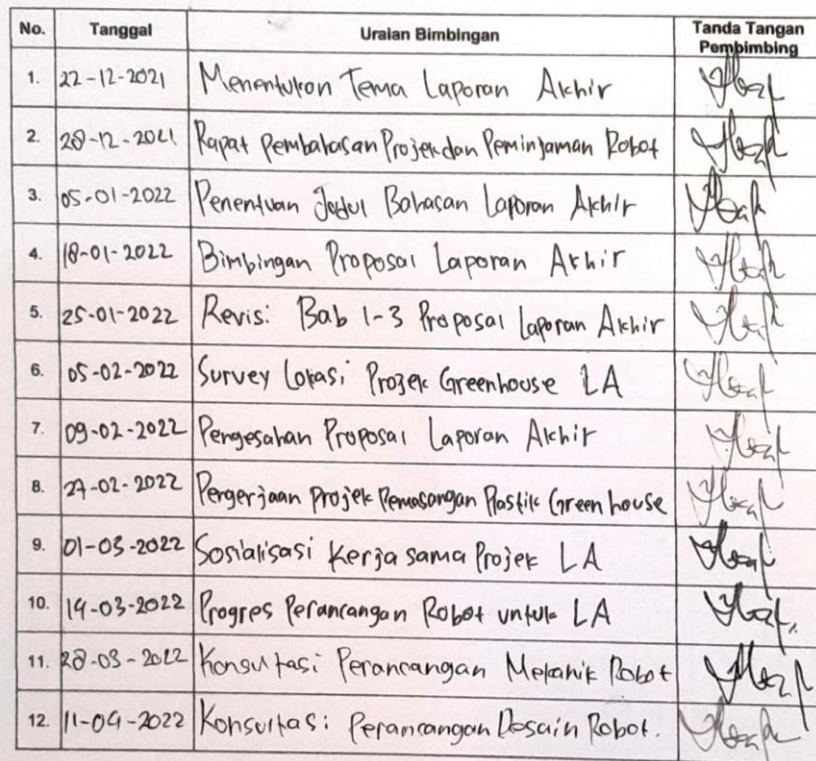 No. Tanggal Uraian Bimbingan Tanda Tangan Pembimbing
1. 22-12-2021 Menentukan Tema Laporan Akhir
2. 28-12-2021 Rapat Pembahasan Projek dan Peminjaman Robot
3. 05-01-2022 Penentuan Judul Bahasan Laporan Akhir
4. 18-01-2022 Bimbingan Proposal Laporan Akhir
5. 25-01-2022 Revisi Bab 1-3 Proposal Laporan Akhir
6. 05-02-2022 Survey Lokasi Projek Greenhouse LA
7. 09-02-2022 Pengesahan Proposal Laporan Akhir
8. 27-02-2022 Pengerjaan Projek Pemasangan Plastik Greenhouse
9. 01-03-2022 Sosialisasi Kerja sama Projek LA
10. 14-03-2022 Progres Perancangan Robot untuk LA
11. 28-03-2022 Konsultasi Perancangan Mekanik Robot
12. 11-04-2022 Konsultasi Perancangan Desain Robot.